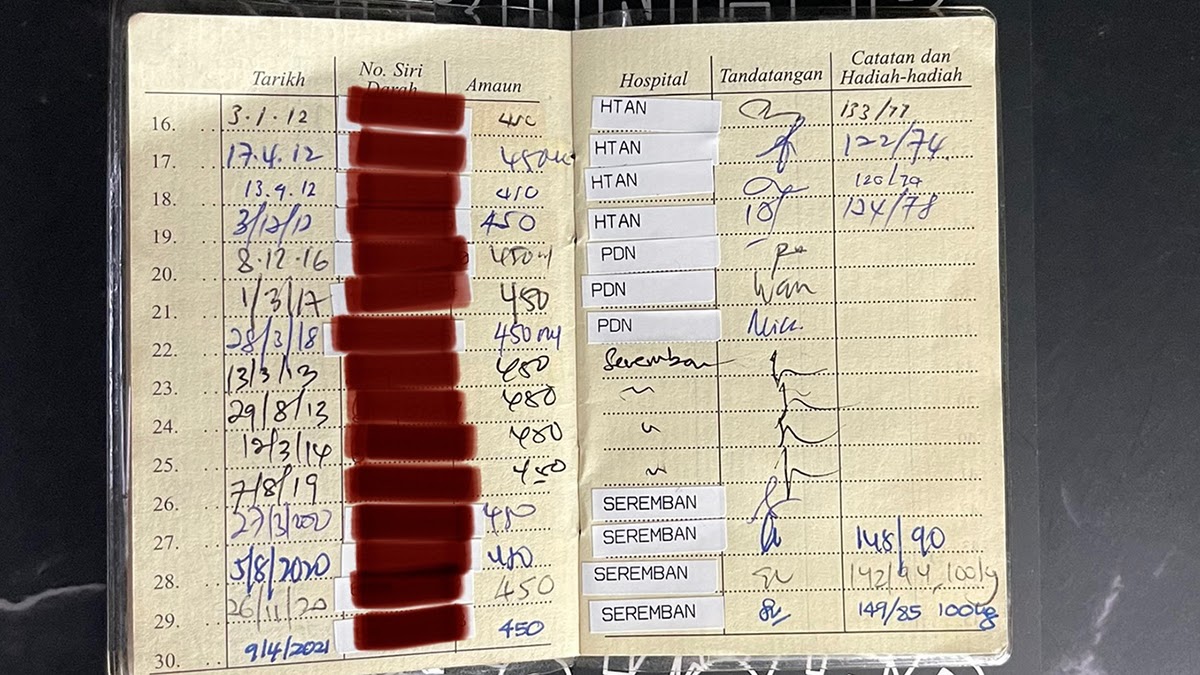 Tarikh No. Siri Darah Amaun Hospital Tandatangan Catatan dan Hadiah-hadiah
16. 3.1.12 450 HTAN 133/77
17. 17.4.12 450ml HTAN 122/74
18. 13.9.12 450 HTAN
19. 3/12/12 450 HTAN 124/78
20. 8.12.16 450ml PDN
21. 1/3/17 450 PDN Wan
22. 28/3/18 450ml PDN
23. 13/3/13 450 Seremban
24. 29/8/13 450 "
25. 12/3/14 450 "
26. 7/8/19 450 "
27. 27/3/2020 450 SEREMBAN
28. 5/8/2020 450 SEREMBAN 148/90
29. 26/11/20 450 SEREMBAN 142/94 100kg
30. 9/4/2021 450 SEREMBAN 149/85 100kg